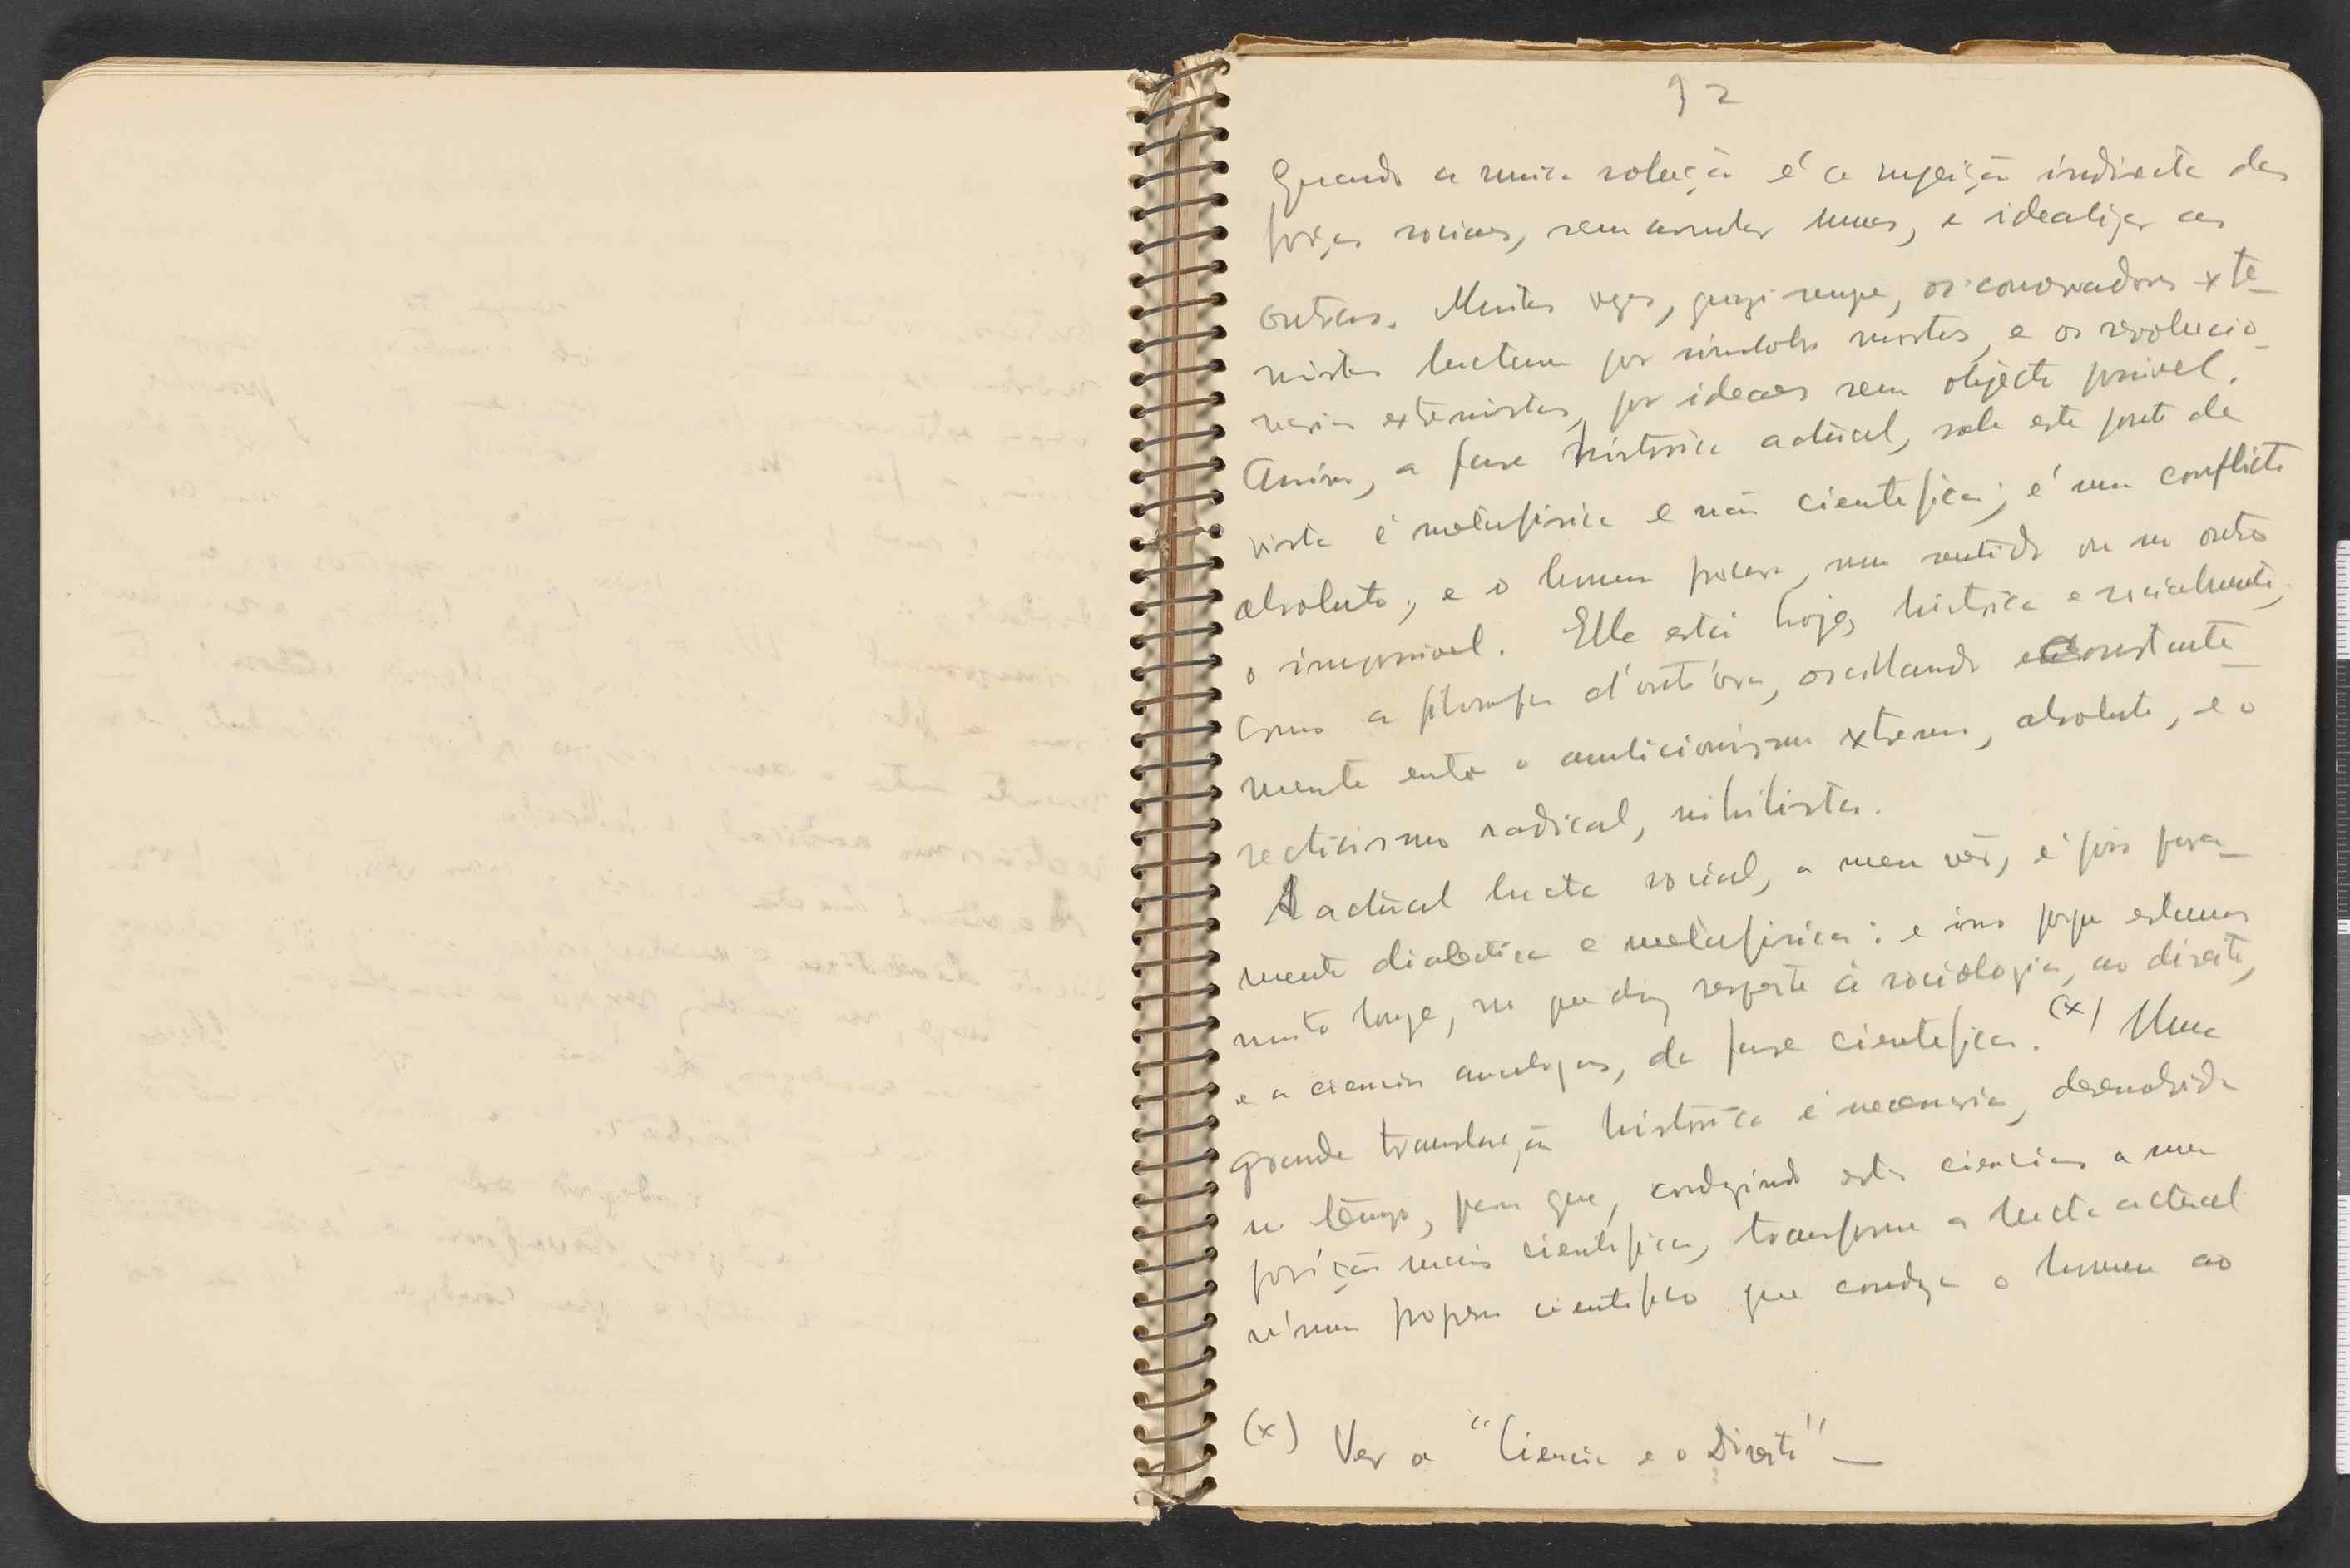 32
Quando a unica solução é a sujeição indirecta das
forças sociaes, sem umas, e idealizar as
outras. Muitas vezes, quazi sempre, os conservadores extre-
mistas luctam por simbolos mortos, e os revolucio-
narios extremistas, por ideaes sem objecto possivel.
Assim, a fase historica actual, sob este ponto de
vista é metafisica e não cientifica; é um conflicto
absoluto; e o homem procura, num sentido ou no outro
o impossivel. Elle está hoje, historica e socialmente,
como a filosofia d'outr'ora, oscillando constante-
mente entre o extremo, absoluto, e o
scepticismo radical, nihilista.
A actual lucta social, a meu vêr, é pois pura-
mente dialectica e metafisica: e isso porque estamos
muito longe, no que diz respeito á sociologia, ao direito,
e a ciencias analogas, da fase cientifica. (x) Uma
grande translação historica é necessaria, desenvolvida
no tempo, para que, conduzindo estas ciencias a uma
posição mais cientifica, transforme a lucta actual
n'um cientifico que conduza o homem ao
(x) Ver a "Ciencia e o Direito" —